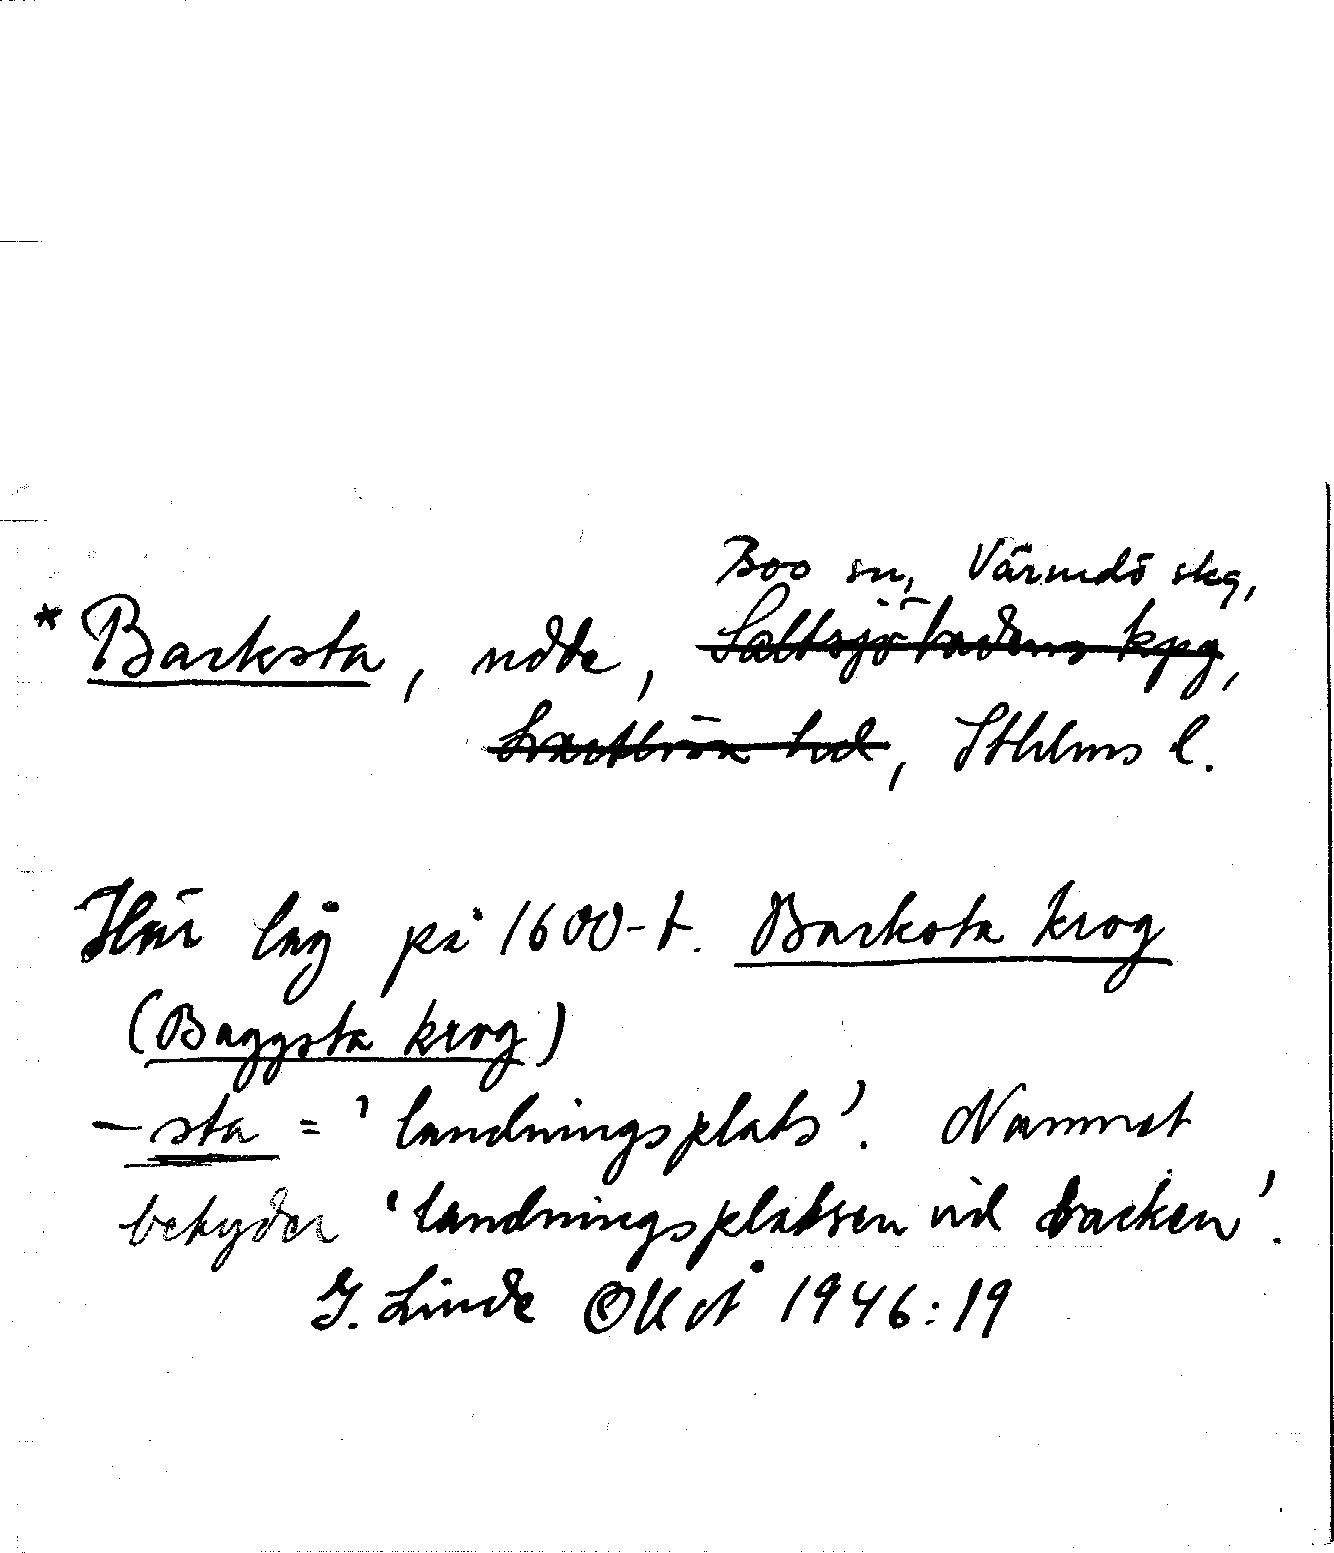 Boo sn, Värmdö skg,
* Backsta, udde, Saltsjöbadens kpg,
Svartlösa hd, Sthlms l.
Här låg på 1600-t. Backsta krog
(Baggsta krog)
-sta = 'landningsplats'. Namnet
betyder 'landningsplatsen vid backen'.
G. Linde 1946:19